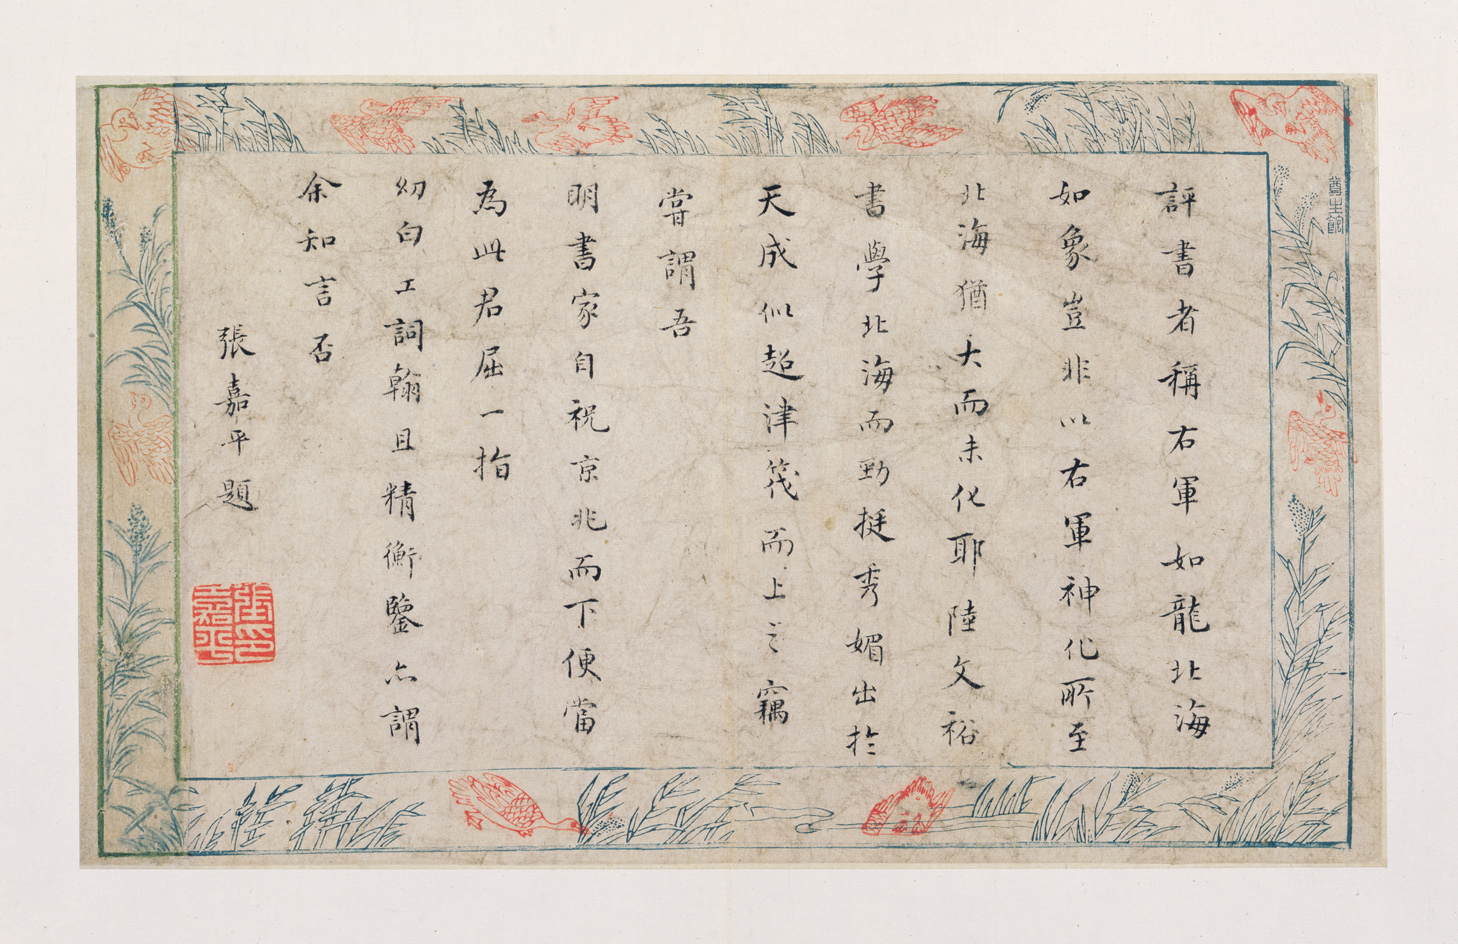 評書者稱右軍如龍北海
如象豈非以右軍神化所至
北海猶大而未化耶陸文裕
書學北海而勁挺秀媚出於
天成似超津筏而上之竊
嘗謂吾
明書家自祝京兆而下便當
為此君屈一指
幼白工詞翰且精衡鑒亦謂
余知言否
張嘉平題
張嘉平印
尊生館